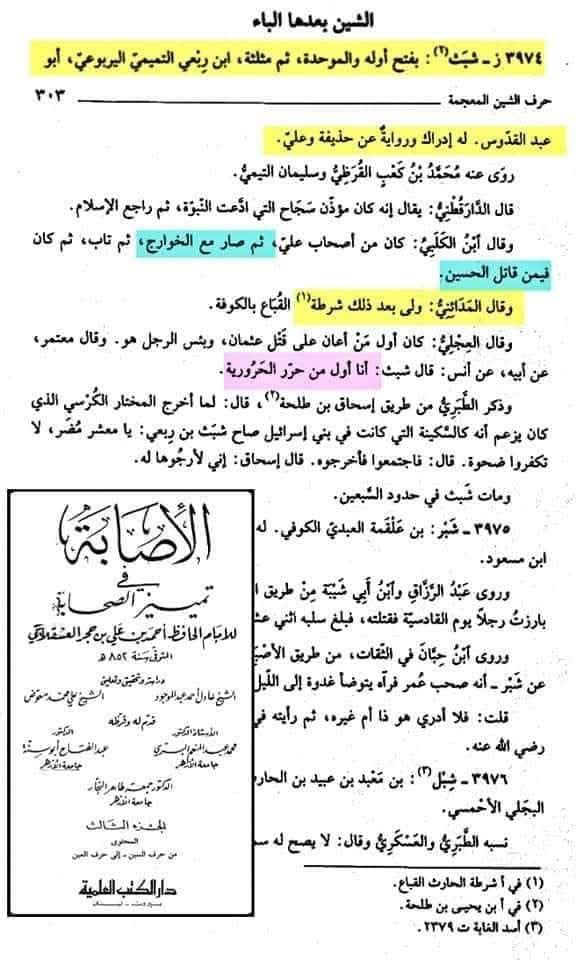 الشين بعدها الباء
٣٩٧٤ ز ـ شَبَث(٢): بفتح أوله والموحدة، ثم مثلثة، ابن رِبْعي التميميّ اليربوعيّ، أبو
حرف الشين المعجمة ٣٠٣
عبد القدّوس. له إدراك وروايةٌ عن حذيفة وعليّ.
روَى عنه مُحَمَّدُ بْنُ كَعْبٍ القُرَظِيُّ وسليمان التيميُّ.
قال الدَّارَقُطْنِيُّ: يقال إنه كان مؤذّن سَجَاح التي ادّعت النبّوة، ثم راجع الإسلام.
وقال ابْنُ الكَلْبِيُّ: كان من أصحاب عليّ، ثم صار مع الخوارج، ثم تاب، ثم كان
فيمن قاتل الحسين.
وقال المَدَائِنِيُّ: ولى بعد ذلك شرطة(١) القُبَاع بالكوفة.
وقال العِجْلِيُّ: كان أول مَنْ أعان على قَتْل عثمان، وبئس الرجل هو. وقال معتمر،
عن أبيه، عن أنس: قال شبث: أنا أول من حرّر الحَرُورية.
وذكر الطَّبَرِيُّ من طريق إسحاق بن طلحة(٢)، قال: لما أخرج المختار الكُرْسي الذي
كان يزعم أنه كالسَّكينة التي كانت في بني إسرائيل صاح شبَث بن رِبعي: يا معشر مُضَر، لا
تكفروا ضحوة. قال: فاجتمعوا فأخرجوه. قال إسحاق: إني لأرجُوها له.
ومات شَبث في حدود السَّبعين.
٣٩٧٥ ـ شَبْر: بن عَلْقَمة العبديّ الكوفي. له
ابن مسعود.
وروى عَبْدُ الرَّزَّاقِ وابْنُ أَبِي شَيْبَة مِنْ طريق ا
بارزتُ رجلًا يوم القادسيّة فقتلته، فبلغ سلبه اثني عش
وروى ابْنُ حِبَّان في الثّقات، من طريق الأصْب
عن شَبْر ـ أنه صحب عُمر فرآه يتوضأ غدوة إلى اللّيل
قلت: فلا أدري هو ذا أم غيره، ثم رأيته في
رضي الله عنه.
٣٩٧٦ ـ شِبْل(٣): بن مَعْبد بن عبيد بن الحارث
البجلي الأحْمسي.
نسبه الطَّبَرِيُّ والعَسْكَرِيُّ وقال: لا يصح له سم
(١) في أ شرطة الحارث القباع.
(٢) في أ بن يحيى بن طلحة.
(٣) أسد الغابة ت ٢٣٧٩.
الإصابة
في
تمييز الصحابة
للامام الحافظ أحمد بن علي بن حجر العسقلاني
المتوفى سنة ٨٥٢ هـ
دراسة وتحقيق وتعليق
الشيخ عادل أحمد عبد الموجود الشيخ علي محمد معوض
قدم له وقرظه
الأستاذ الدكتور الدكتور
محمد عبد المنعم البري عبد الفتاح أبو سنة
جامعة الأزهر جامعة الأزهر
الدكتور جمعة طاهر النجار
جامعة الأزهر
الجزء الثالث
المحتوى
من حرف السين ـ إلى حرف العين
دار الكتب العلمية
بيروت ـ لبنان